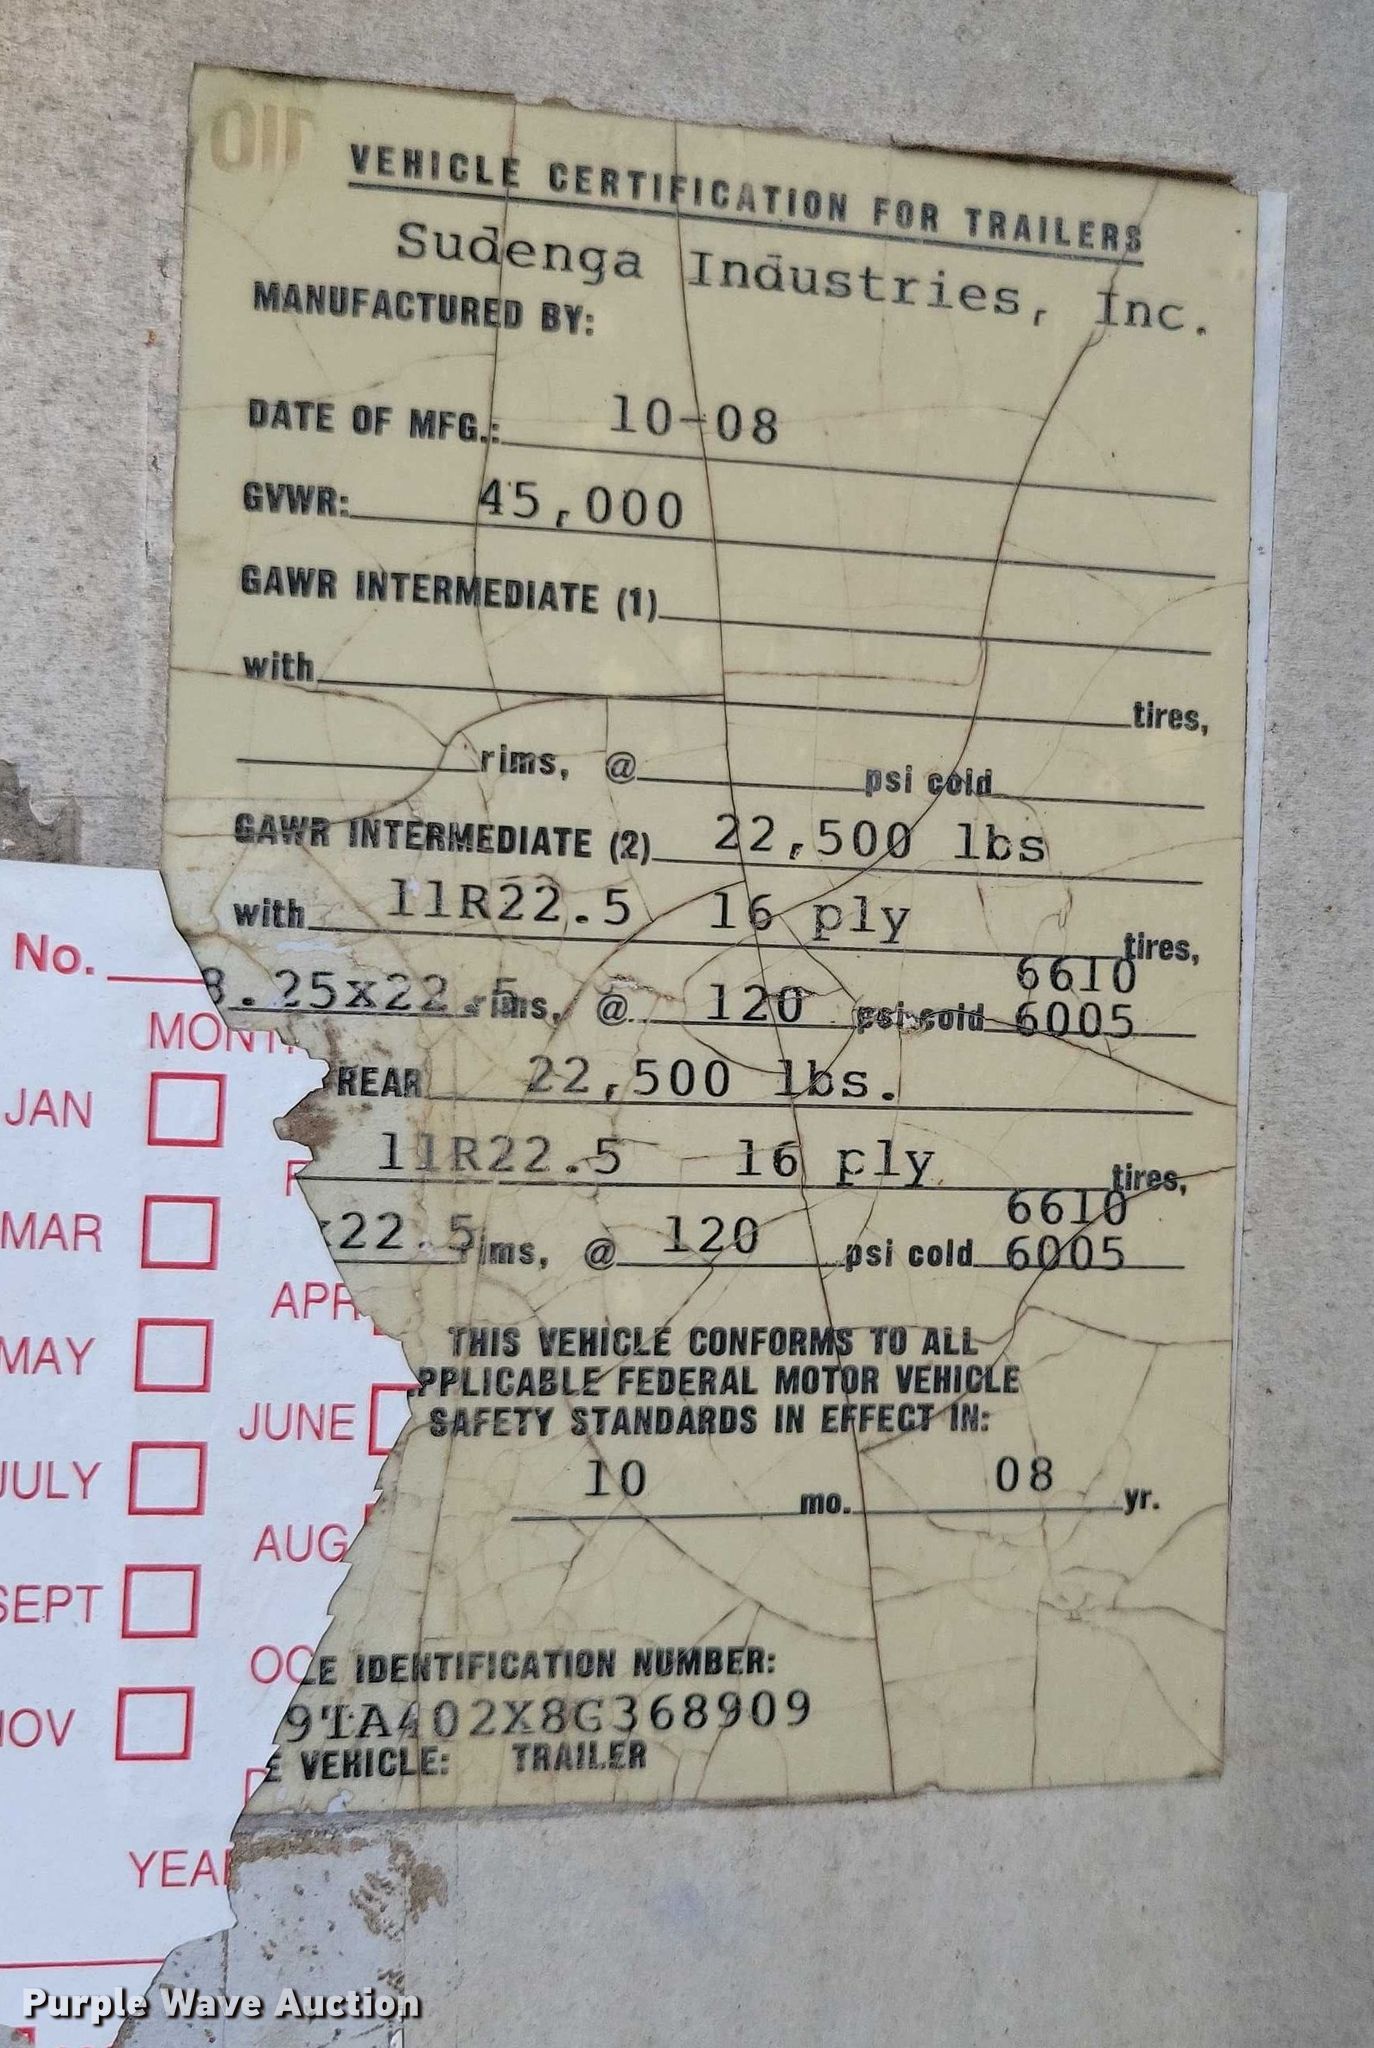 VEHICLE CERTIFICATION FOR TRAILERS
Sudenga Industries, Inc.
MANUFACTURED BY:
DATE OF MFG.: 10-08
GVWR: 45,000
GAWR INTERMEDIATE (1)
with
tires,
rims, @ psi cold
GAWR INTERMEDIATE (2) 22,500 lbs
with 11R22.5 16 ply tires,
6610
8.25x22.5 rims, @ 120 psi cold 6005
REAR 22,500 lbs.
11R22.5 16 ply tires,
6610
x22.5 rims, @ 120 psi cold 6005
THIS VEHICLE CONFORMS TO ALL
PPLICABLE FEDERAL MOTOR VEHICLE
SAFETY STANDARDS IN EFFECT IN:
10 mo. 08 yr.
LE IDENTIFICATION NUMBER:
9TA402X8G368909
E VEHICLE: TRAILER
No.
MONTH
JAN
F
MAR
APR
MAY
JUNE
JULY
AUG
SEPT
OC
NOV
D
YEAR
Purple Wave Auction